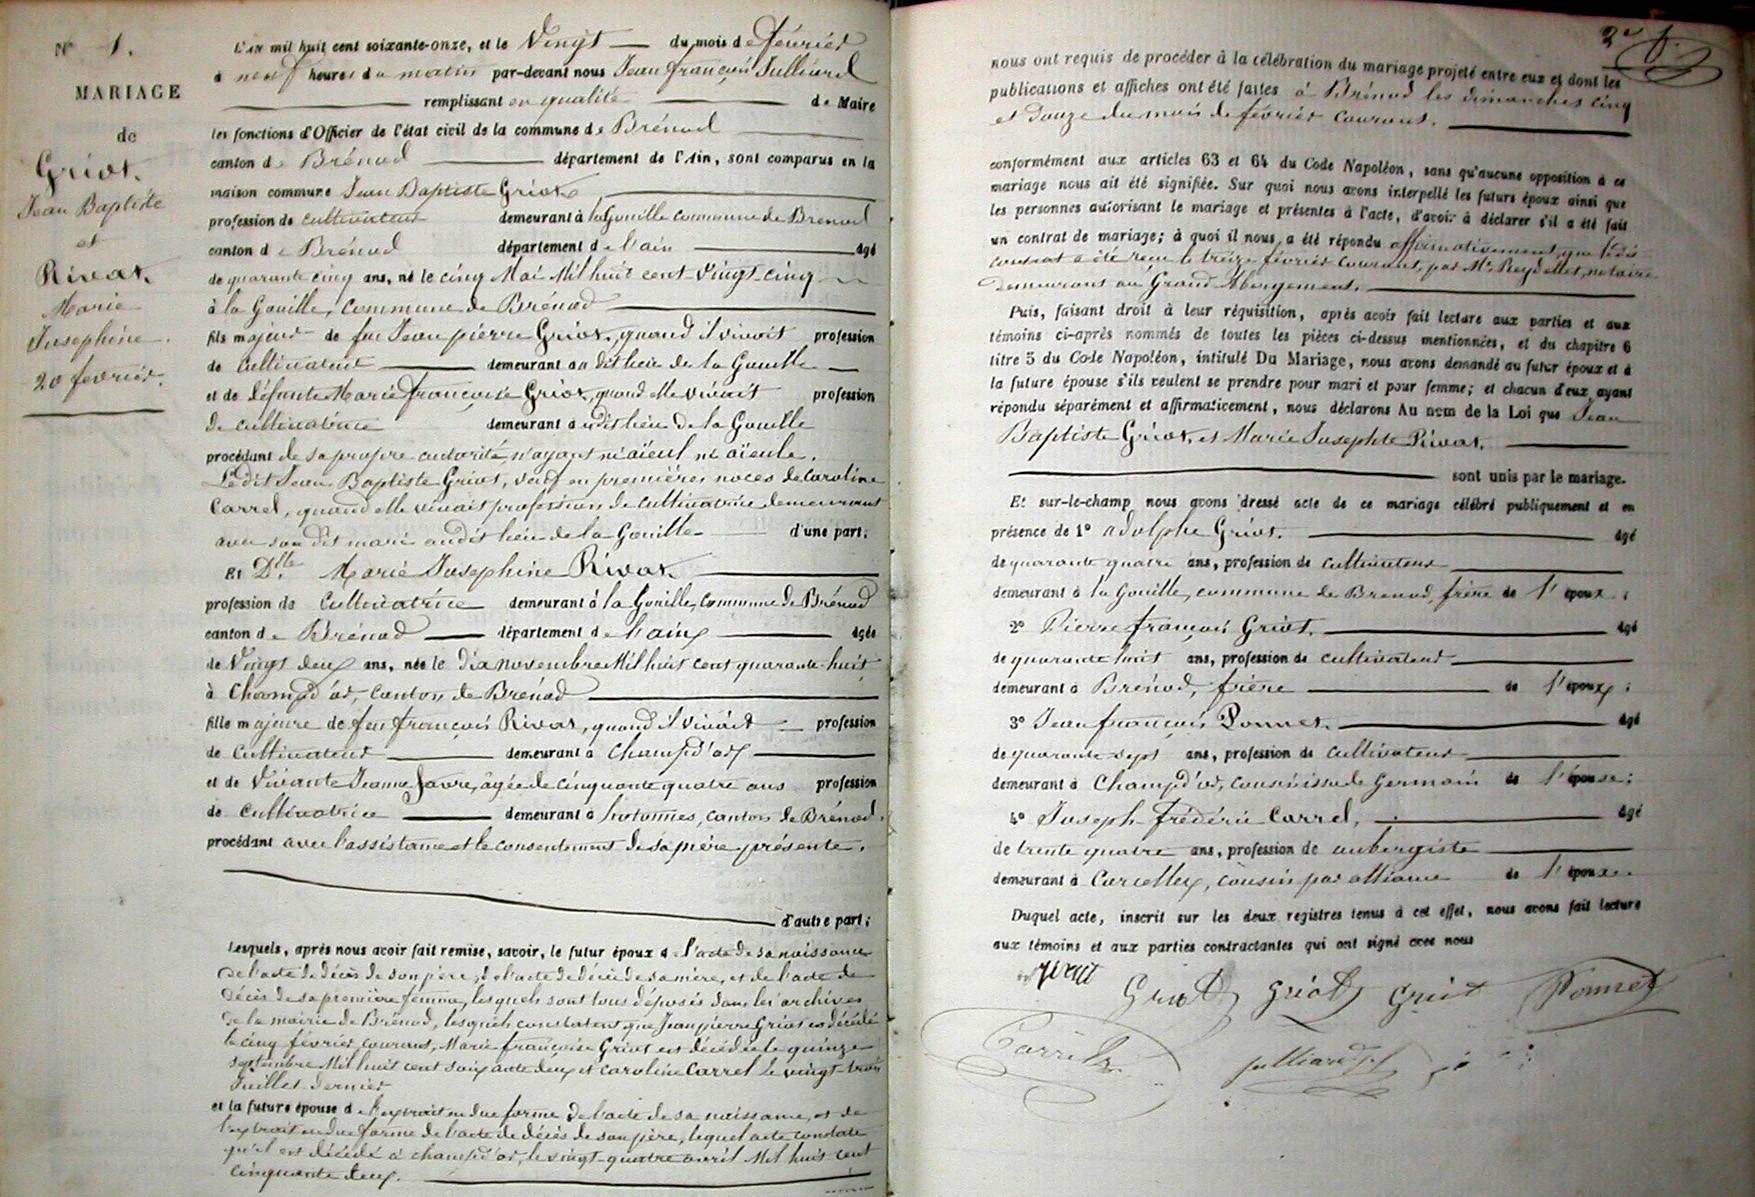 N° 1.
MARIAGE
de
Griot.
Jean Baptiste
et
Rivat.
Marie
Josephine.
20 fevrier.
L'AN mil huit cent soixante-onze, et le Vingt du mois de février
à neuf heures du matin par-devant nous Jean françois Julliard
remplissant en qualité de Maire
les fonctions d'Officier de l'état civil de la commune de Brénod
canton de Brénod département de l'Ain, sont comparus en la
maison commune Jean Baptiste Griot
profession de cultivateur demeurant à la Gouille commune de Brénod
canton de Brénod département de l'ain âgé
de quarante cinq ans, né le cinq Mai Mil huit cent vingt-cinq
à la Gouille, commune de Brénod
fils majeur de feu Jean pierre Griot, quand il vivait profession
de cultivateur demeurant au dit lieu de la Gouille
et de défunte Marie françoise Griot, quand elle vivait profession
de cultivatrice demeurant audit lieu de la Gouille
procédant de sa propre autorité, n'ayant ni aïeul ni aïeule.
Le dit Jean Baptiste Griot, veuf en premières noces de Caroline
Carrel, quand elle vivait profession de cultivatrice demeurant
avec son dit mari audit lieu de la Gouille d'une part;
Et Dlle Marie Josephine Rivat
profession de Cultivatrice demeurant à la Gouille, commune de Brénod
canton de Brénod département de l'ain âgée
de Vingt deux ans, née le dix novembre Mil huit cent quarante-huit
à Champd'or, canton de Brénod
fille majeure de feu françois Rivat, quand il vivait profession
de cultivateur demeurant à Champd'or
et de Vivante Jeanne Favre, âgée de cinquante quatre ans profession
de cultivatrice demeurant à hotonnes, canton de Brénod.
procédant avec l'assistance et le consentement de sa mère présente.
d'autre part;
Lesquels, après nous avoir fait remise, savoir, le futur époux de l'acte de sa naissance
de l'acte de décès de son père, de l'acte de décès de sa mère, et de l'acte de
décès de sa première femme, lesquels sont tous déposés dans les archives
de la mairie de Brénod, lesquels constatent que Jean pierre Griot est décédé
le cinq février courant, Marie françoise Griot est décédée le quinze
septembre Mil huit cent soixante deux et Caroline Carrel le vingt-trois
Juillet dernier
et la future épouse de l'extrait en due forme de l'acte de sa naissance, et de
l'extrait en due forme de l'acte de décès de son père, lequel acte constate
qu'il est décédé à champd'or, le vingt-quatre avril Mil huit cent
cinquante deux.
2e f.
nous ont requis de procéder à la célébration du mariage projeté entre eux et dont les
publications et affiches ont été faites à Brénod les dimanches cinq
et douze du mois de février courant.
conformément aux articles 63 et 64 du Code Napoléon, sans qu'aucune opposition à ce
mariage nous ait été signifiée. Sur quoi nous avons interpellé les futurs époux ainsi que
les personnes autorisant le mariage et présentes à l'acte, d'avoir à déclarer s'il a été fait
un contrat de mariage; à quoi il nous a été répondu affirmativement, que le dit
contrat a été reçu le treize février courant, par Me Puydellet, notaire
demeurant au Grand Abergement.
Puis, faisant droit à leur réquisition, après avoir fait lecture aux parties et aux
témoins ci-après nommés de toutes les pièces ci-dessus mentionnées, et du chapitre 6
titre 5 du Code Napoléon, intitulé Du Mariage, nous avons demandé au futur époux et à
la future épouse s'ils veulent se prendre pour mari et pour femme; et chacun d'eux ayant
répondu séparément et affirmativement, nous déclarons Au nom de la Loi que Jean
Baptiste Griot, et Marie Josephte Rivat.
sont unis par le mariage.
Et sur-le-champ nous avons dressé acte de ce mariage célébré publiquement et en
présence de 1° Adolphe Griot. âgé
de quarante quatre ans, profession de cultivateur
demeurant à la Gouille, commune de Brénod, frère de l'époux;
2° Pierre françois Griot. âgé
de quarante huit ans, profession de cultivateur
demeurant à Brénod, frère de l'époux;
3° Jean françois Ponnet. âgé
de quarante sept ans, profession de cultivateur
demeurant à Champd'or, cousin issu de Germain de l'épouse;
4° Joseph frédéric Carrel, âgé
de trente quatre ans, profession de aubergiste
demeurant à Corcelles, cousin par alliance de l'époux.
Duquel acte, inscrit sur les deux registres tenus à cet effet, nous avons fait lecture
aux témoins et aux parties contractantes qui ont signé avec nous
Griot Griot Griot Ponnet
Carrel Julliard